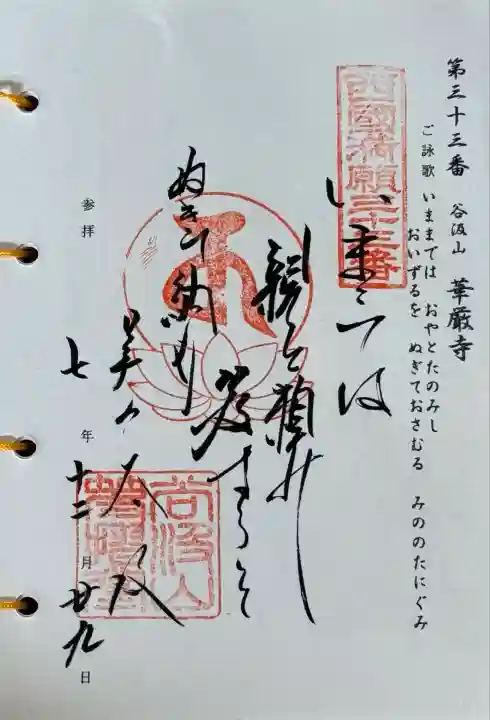 第三十三番 谷汲山 華厳寺
ご詠歌 いままでは おやとたのみし
おいずるを ぬぎておさむる みののたにぐみ
西國満願三十三番
今まては
親と頼みし
笈すりを
ぬきて納むる
美の乃谷汲
谷汲山
参拝 七年 十二月 廿九日